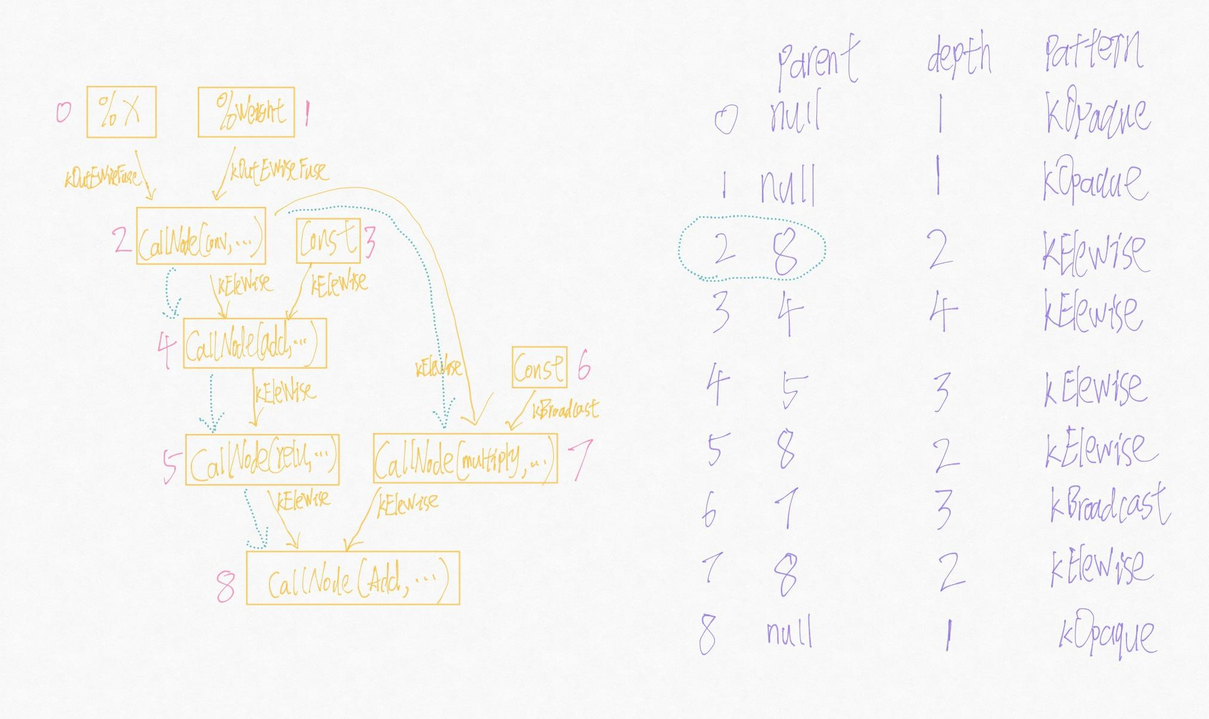 0 %X %Weight 1
kOutEWiseFuse kOutEWiseFuse
2 CallNode(conv,...) Const 3
kEleWise kEleWise
4 CallNode(add,...)
kEleWise kEleWise Const 6
kBroadcast
5 CallNode(relu,...) CallNode(multiply,...) 7
kEleWise kEleWise
8 CallNode(Add,...)
parent depth Pattern
0 null 1 kOpaque
1 null 1 kOpaque
2 8 2 kElewise
3 4 4 kElewise
4 5 3 kElewise
5 8 2 kElewise
6 7 3 kBroadcast
7 8 2 kElewise
8 null 1 kOpaque